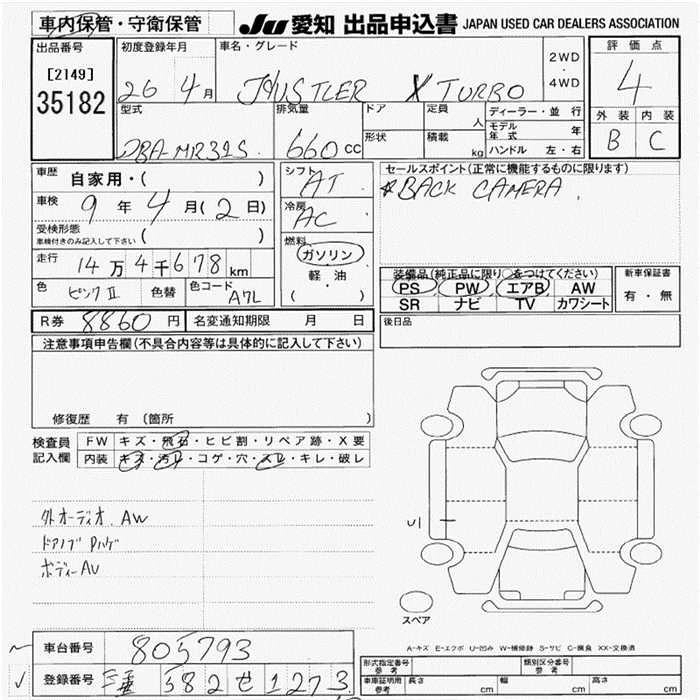 車内保管・守衛保管
JU 愛知 出品申込書 JAPAN USED CAR DEALERS ASSOCIATION
出品番号
[2149]
35182
初度登録年月
26 4月
車名・グレード
HUSTLER X TURBO
2WD
・
4WD
評価点
4
外装 内装
B C
型式
DBA-MR31S
排気量
660 cc
ドア
形状
定員
人
積載
kg
ディーラー・並行
モデル年式 年
ハンドル 左・右
車歴
自家用・( )
車検
9年 4月(2日)
受検形態
車検付きのみ記入して下さい ( )
走行
14万4千678 km
色
ピンクII
色替
色コード
A7L
シフト
AT
冷房
AC
燃料
ガソリン
軽・油
( )
セールスポイント(正常に機能するものに限ります)
*BACK CAMERA.
装備品(純正品に限り○をつけてください)
PS PW エアB AW
SR ナビ TV カワシート
新車保証書
有・無
R券 8860円
名変通知期限 月 日
後日品
注意事項申告欄(不具合内容等は具体的に記入して下さい)
修復歴 有 (箇所 )
検査員
記入欄
FW キズ・飛石・ヒビ割・リペア跡・X要
内装 キズ・汚レ・コゲ・穴・スレ・キレ・破レ
外オーディオ.AW
ドアノブ Pハゲ
ボディーAU
U1
スペア
A-キズ E-エクボ U-凹み W-補修跡 S-サビ C-腐食 XX-交換済
車台番号 805793
登録番号 三重 582 せ 1273
型式指定番号
参考
類別区分番号
参考
車庫証明用
参考
長さ cm
幅 cm
高さ cm